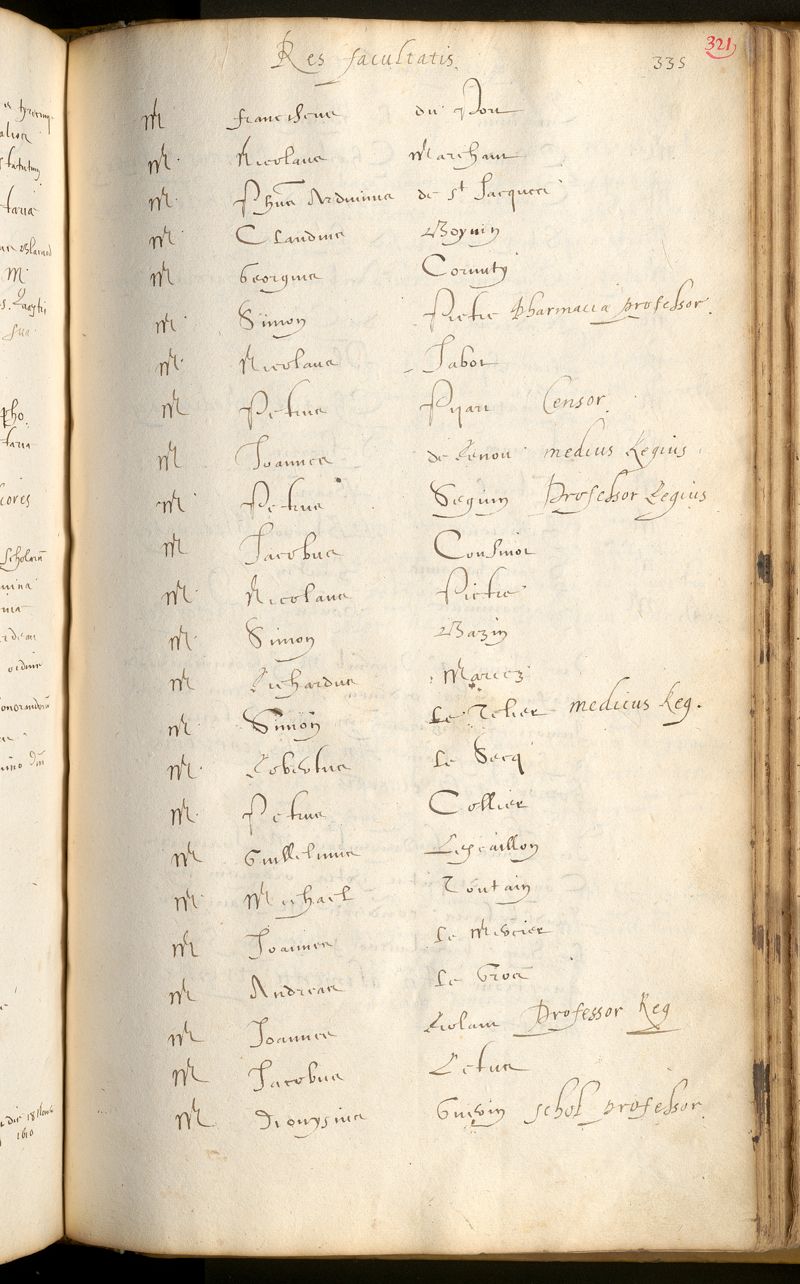 Res facultatis.
335
321
M. Franciscus du Port
M. Nicolaus Marchant
M. Phus Arduinus de St Jacques
M. Claudius Boyvin
M. Georgius Cornuty
M. Simon Pietre Pharmaciæ professor.
M. Nicolaus Jabot
M. Petrus Pijart Censor.
M. Joannes de Renou medicus Regius
M. Petrus Seguin Professor Regius
M. Jacobus Cousinot
M. Nicolaus Pietre
M. Simon Bazin
M. Richardus
M. Simon Le Telier medicus Reg.
M. Robertus Le Secq
M. Petrus Collier
M. Guillelmus Lescaillon
M. Michael Toutain
M. Joannes Le Mercier
M. Andreas Le Gros
M. Joannes Riolan Professor Reg
M. Jacobus Letus
M. Dionysius Guerin schol professor.